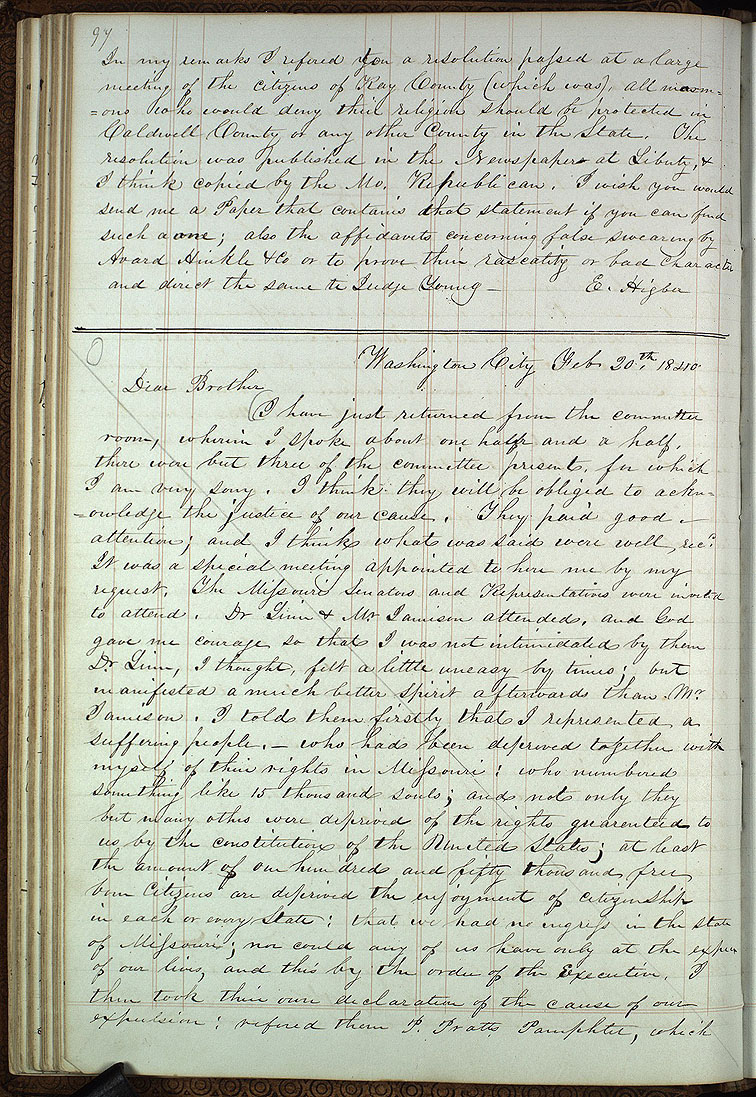 97
In my remarks I refered you a resolution passed at a large
meeting of the citizens of Ray County (which was), all morm=
=ons who would deny their religion should be protected in
Caldwell County or any other County in the State. The
resolution was published in the Newspaper at Liberty, &
I think copied by the Mo. Republican. I wish you would
send me a Paper that contains that statement if you can find
such a one; also the affidavits concerning false swearing by
Avard Hinkle & Co or to prove their rascality or bad character
and direct the same to Judge Young — E. Higbee
Washington City Feb. 20th, 1840
Dear Brother
I have just returned from the committee
room, wherein I spoke about one half and a half.
there were but three of the committee present, for which
I am very sorry. I think they will be obliged to ackn-
=owledge the justice of our cause. They paid good —
attention; and I think what was said were well recd.
It was a special meeting appointed to here me by my
request. The Missouri Senators and Representatives were invited
to attend. Dr Linn & Mr Jamison attended, and God
gave me courage so that I was not intimidated by them
Dr. Linn, I thought, felt a little uneasy by times; but
manifested a much better spirit afterwards than Mr
Jameson. I told them firstly that I represented a
suffering people, — who had been deprived together with
myself of their rights in Missouri: who numbered
something like 15 thousand souls; and not only they
but many others were deprived of the rights guarenteed to
us by the constitution of the United States; at least
the amount of one hundred and fifty thousand free
born Citizens are deprived the enjoyment of citizenship
in each or every State: that we had no ingress in the state
of Missouri; nor could any of us have only at the expen
of our lives, and this by the order of the Executive. I
then took their own declaration of the cause of our
expulsion: refered them P. Pratts Pamphlet, which